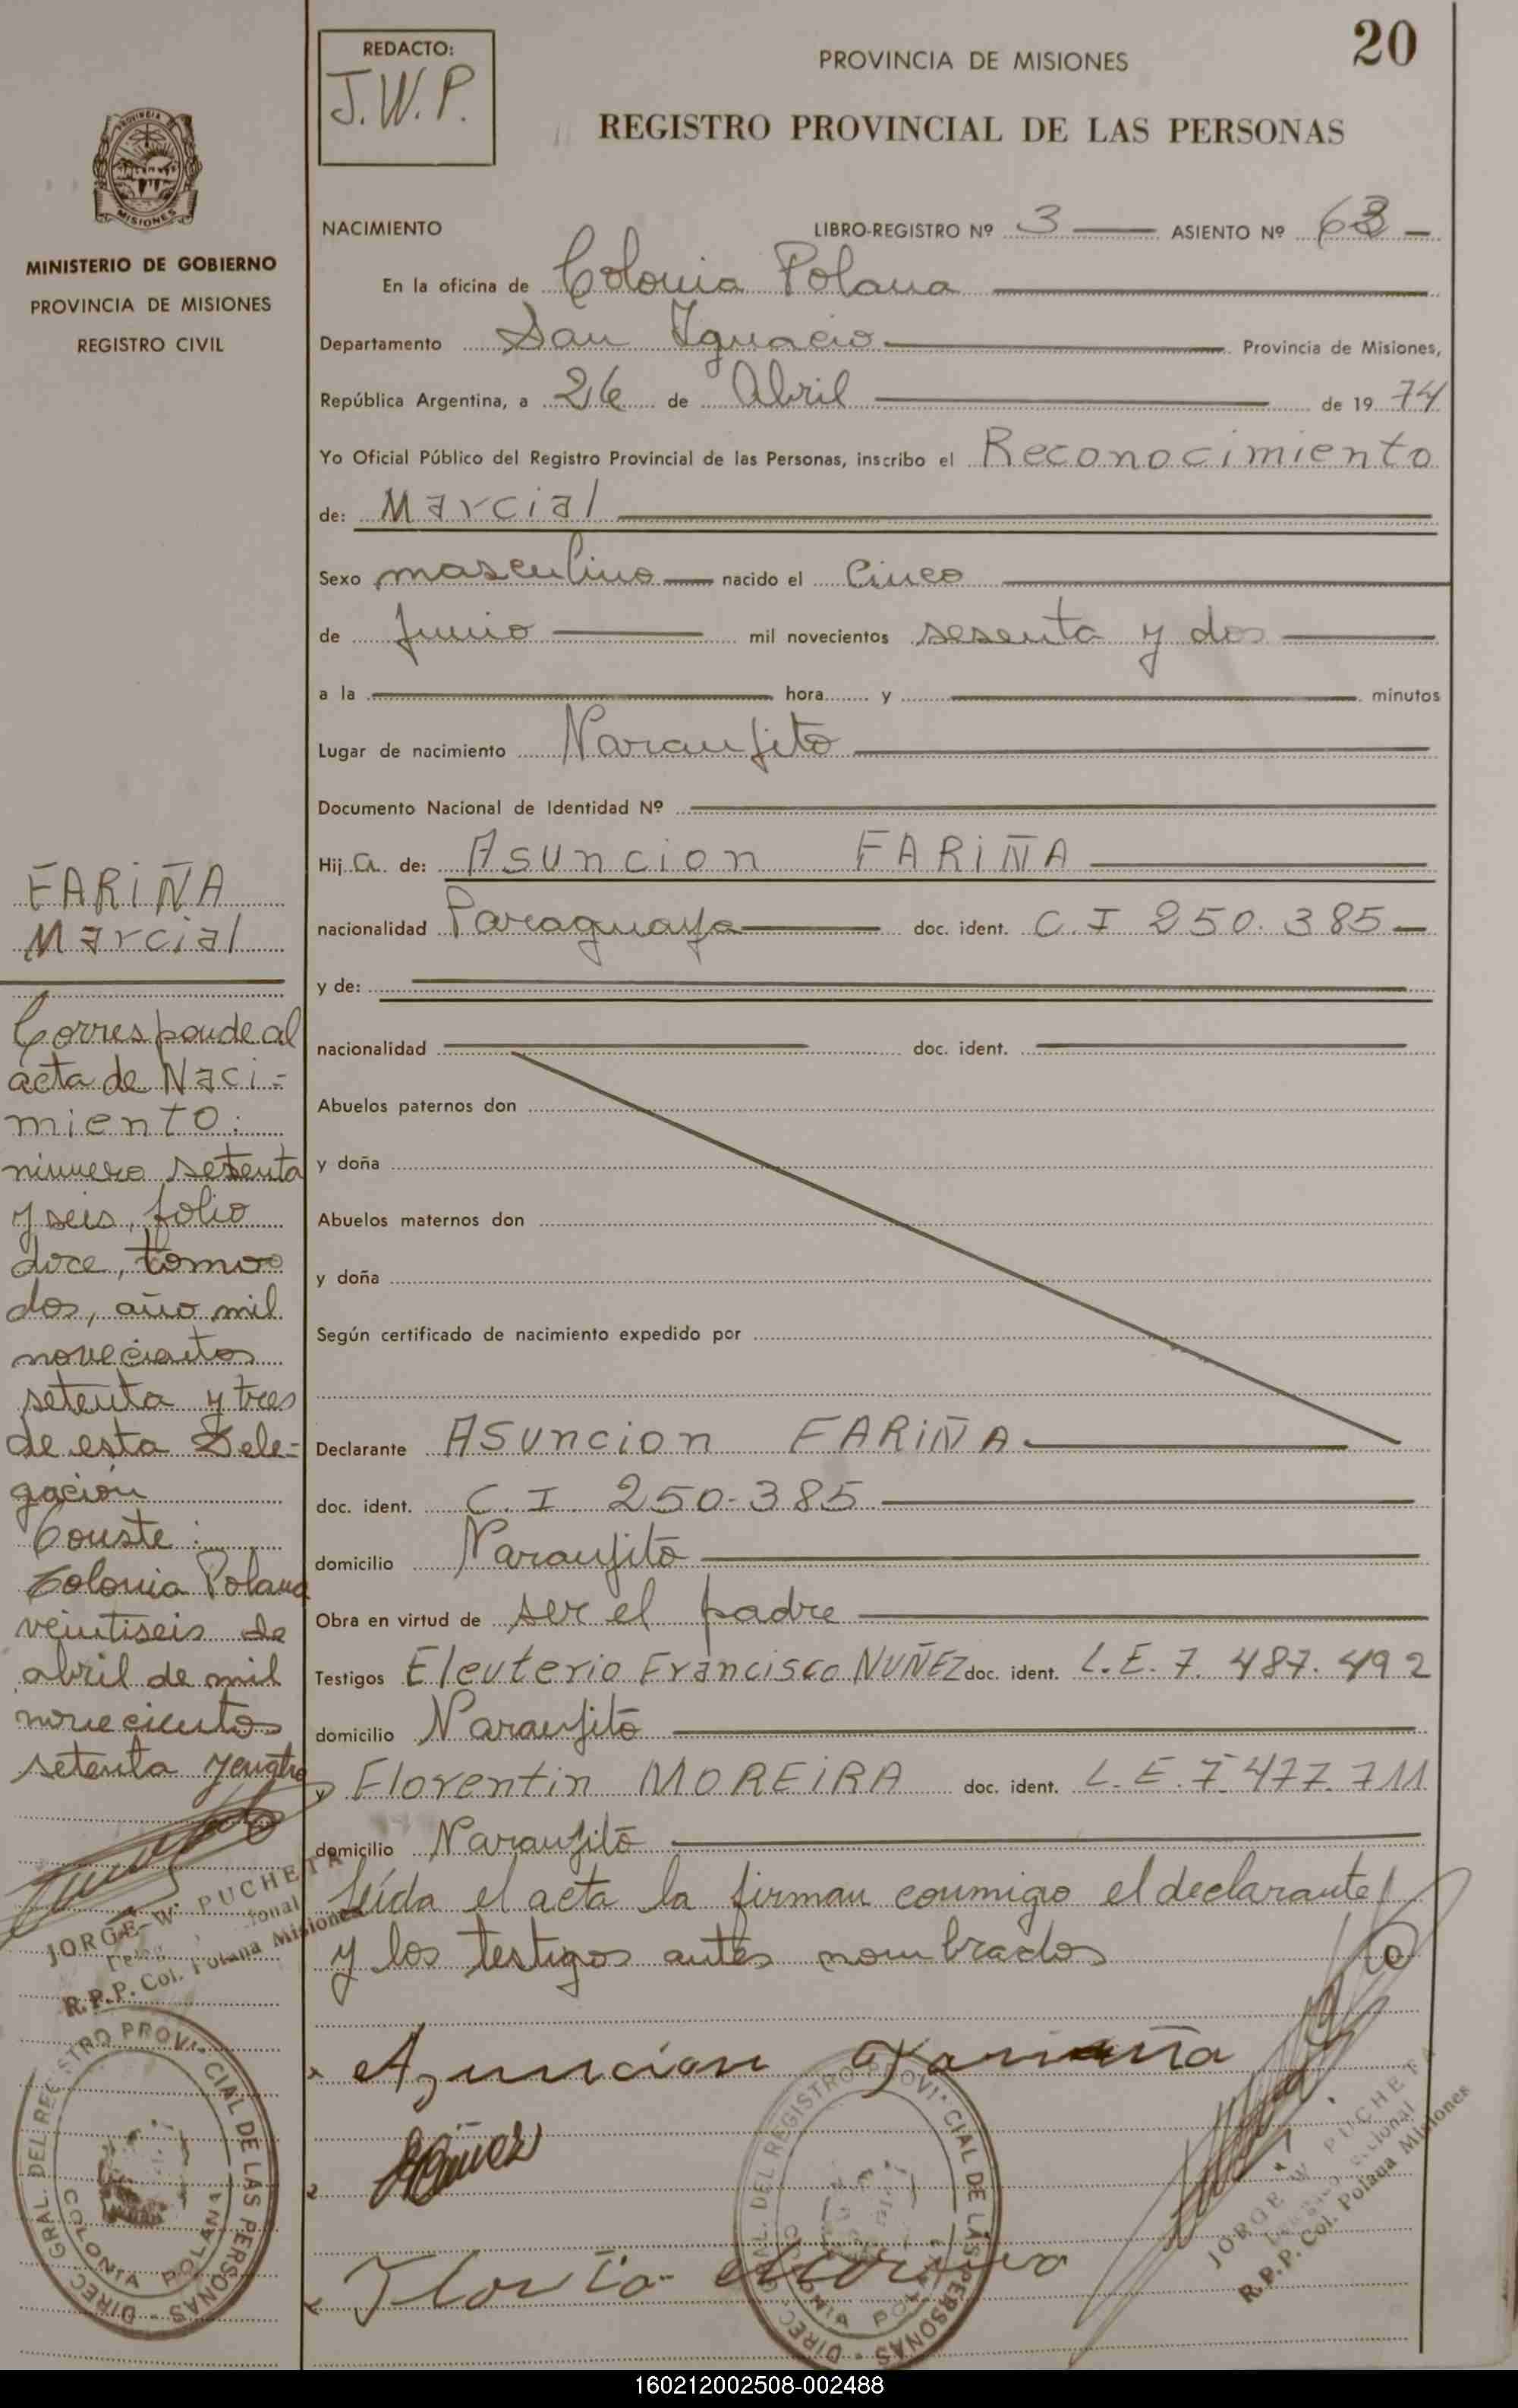 20
REDACTO:
J.W.P.
PROVINCIA DE MISIONES
REGISTRO PROVINCIAL DE LAS PERSONAS
MISIONES
MINISTERIO DE GOBIERNO
PROVINCIA DE MISIONES
REGISTRO CIVIL
NACIMIENTO LIBRO-REGISTRO Nº 3 ASIENTO Nº
En la oficina de Colonia Polana
Departamento San Ignacio Provincia de Misiones,
República Argentina, a 26 de Abril de 1974
Yo Oficial Público del Registro Provincial de las Personas, inscribo el Reconocimiento
de: Marcial
Sexo masculino nacido el Cinco
de Junio mil novecientos sesenta y dos
a la hora y minutos
Lugar de nacimiento Naranjito
Documento Nacional de Identidad Nº
Hija de: Asuncion FARIÑA
nacionalidad Paraguaya doc. ident. C.I 250.385
y de:
nacionalidad doc. ident.
Abuelos paternos don
y doña
Abuelos maternos don
y doña
Según certificado de nacimiento expedido por
Declarante ASuncion FARIÑA
doc. ident. C.I. 250-385
domicilio Naranjito
Obra en virtud de ser el padre
Testigos Eleuterio Francisco NUÑEZ doc. ident. L.E. 7.487.492
domicilio Naranjito
y Florentin MOREIRA doc. ident. L.E. 7.477.711
domicilio Naranjito
Leída el acta la firman conmigo el declarante
y los testigos antes nombrados
Asuncion Fariña
FARIÑA
Marcial
Corresponde al
acta de Naci-
miento:
número setenta
y seis, folio
doce, tomo
dos, año mil
novecientos
setenta y tres
de esta Dele-
gación
Conste:
Colonia Polana
veintiseis de
abril de mil
novecientos
setenta y cuatro
JORGE W. PUCHETA
R.P.P. Col. Polana Misiones
DIREC. GRAL. DEL REGISTRO PROVINCIAL DE LAS PERSONAS
COLONIA POLANA
DIREC. GRAL. DEL REGISTRO PROVINCIAL DE LAS PERSONAS
COLONIA POLANA
JORGE W. PUCHETA
R.P.P. Col. Polana Misiones
160212002508-002488